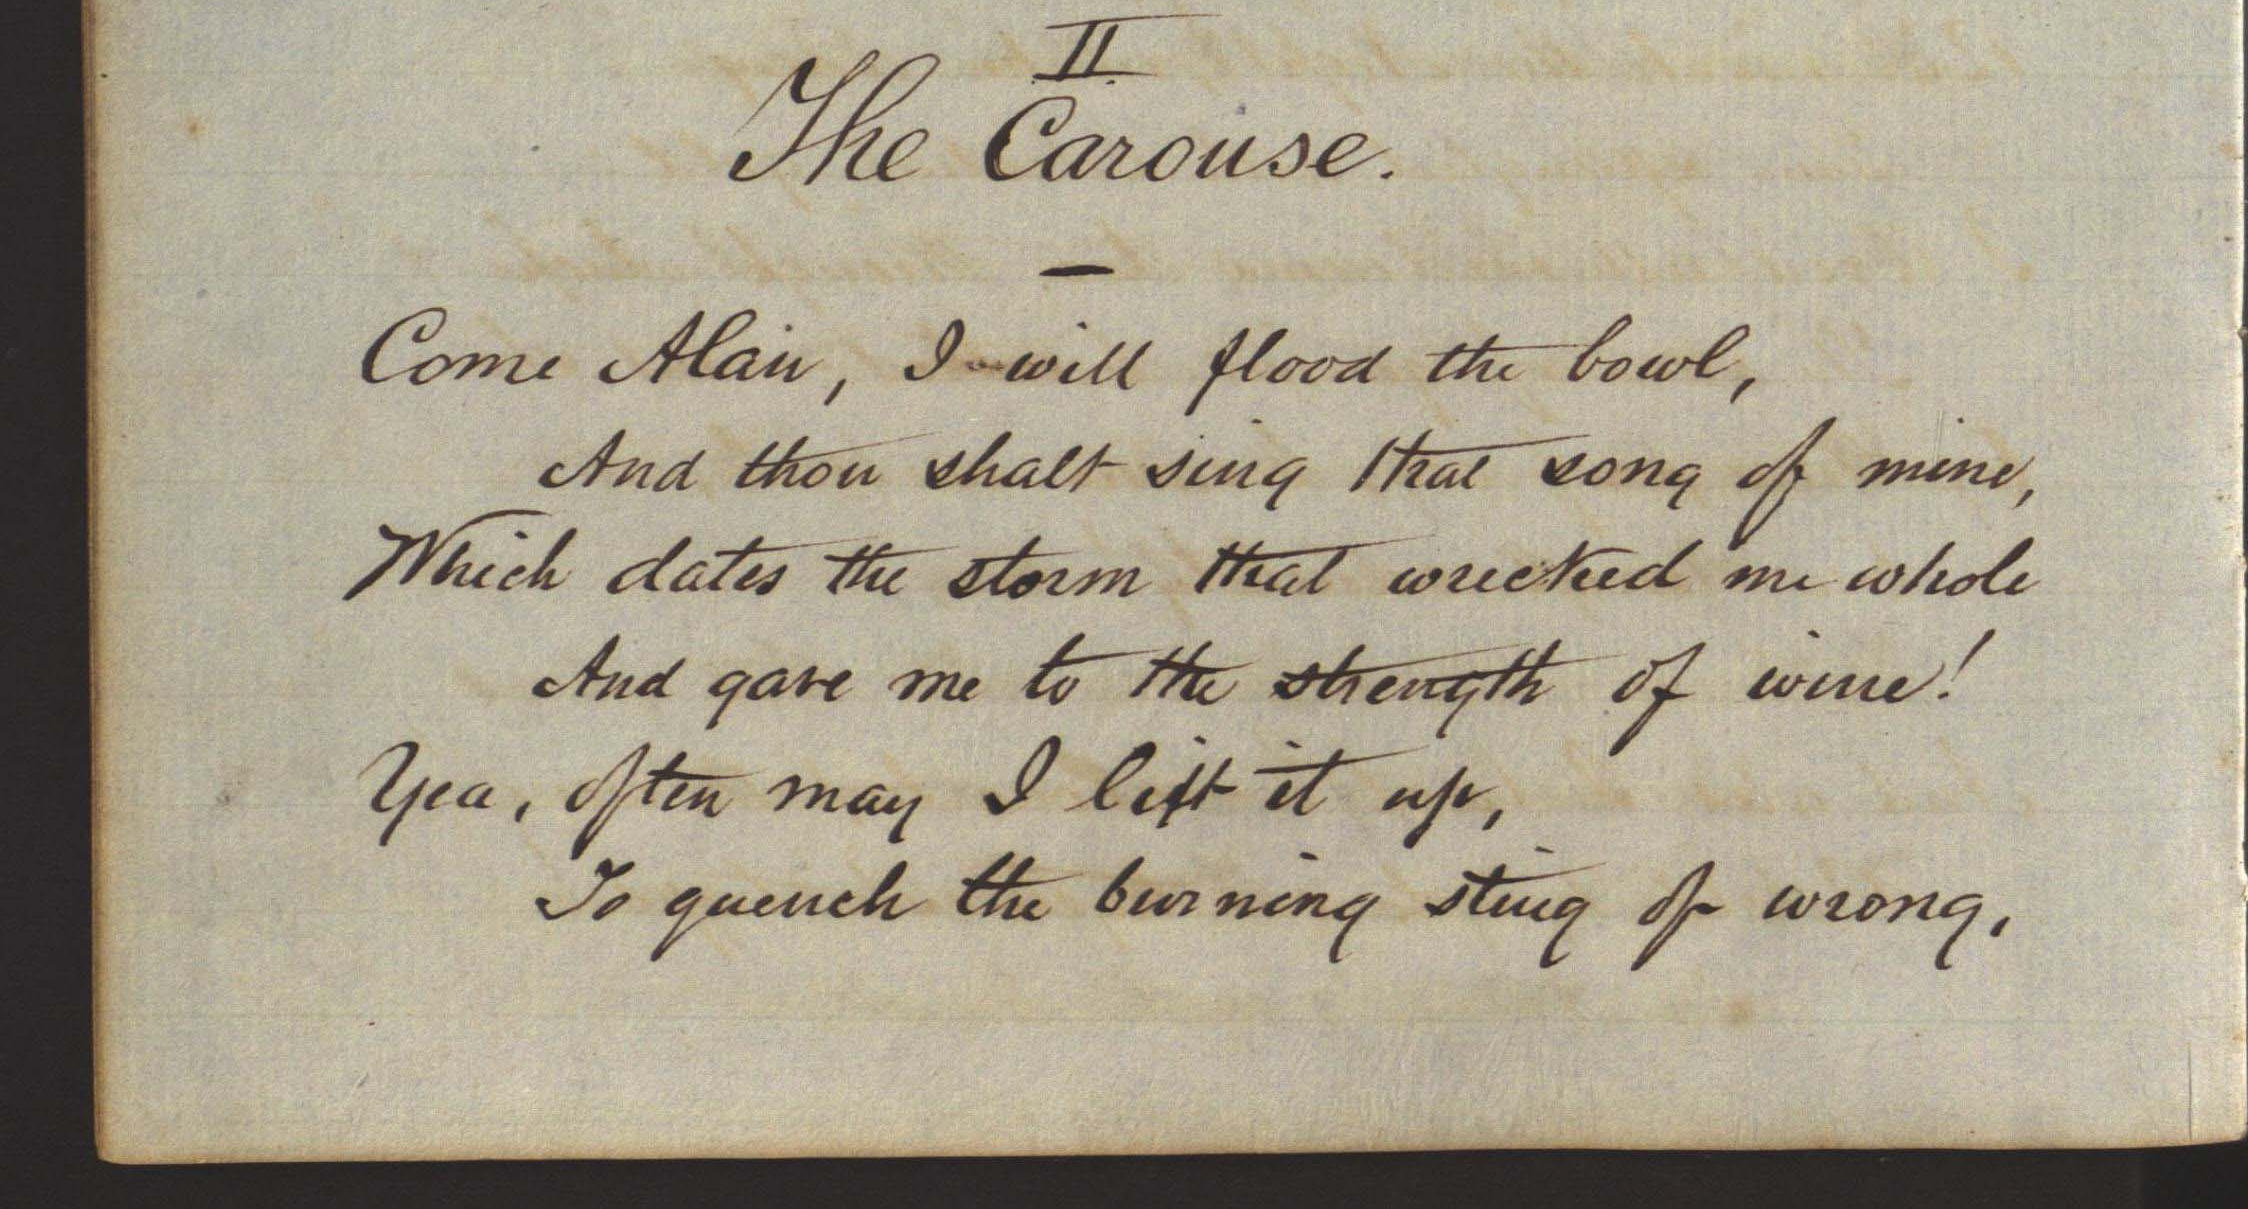 II.
The Carouse.
Come Alain, I will flood the bowl,
And thou shalt sing that song of mine,
Which dates the storm that wrecked me whole
And gave me to the strength of wine!
Yea, often may I lift it up,
To quench the burning sting of wrong,